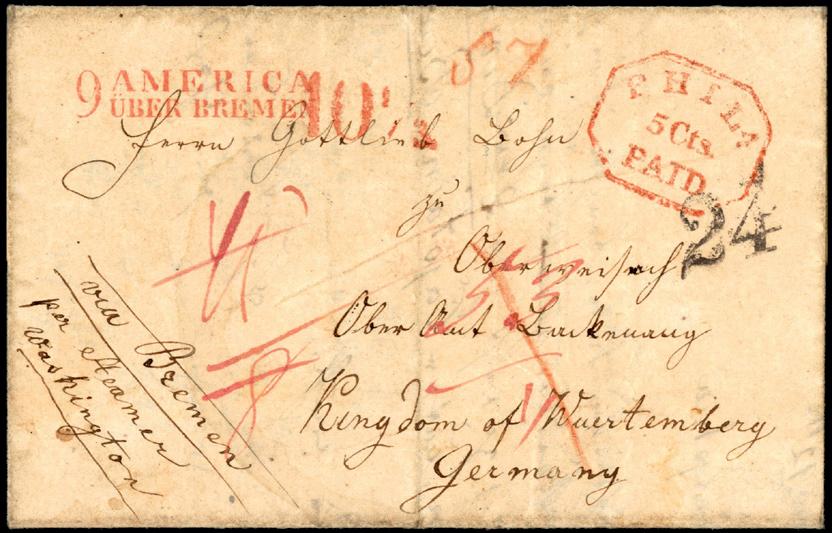 9 AMERICA
ÜBER BREMEN
10½
57
PHILA
5 Cts.
PAID
24
Herrn Gottlieb Bohn
zu
Oberweisach
Ober Amt Backenang
Kingdom of Wuertemberg
Germany
via Bremen
per Steamer
Washington